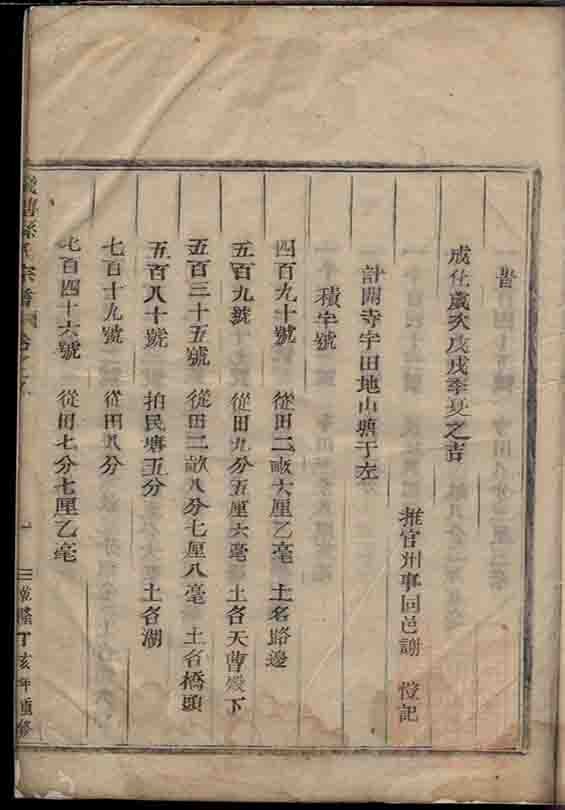 昔
成化歲次戊戌季夏之吉
推官州事同邑謝 愷記
計開寺宇田地山塘于左
積字號
四百九十號 從田二畝六厘乙毫 土名路邊
五百九號 從田九分五厘六毫 土各天曹殿下
五百三十五號 從田二畝八分七厘八毫 土各橋頭
五百八十號 拍民塘五分 土各湖
七百十九號 從田八分
七百四十六號 從田七分七厘乙毫
孫氏宗譜 卷之
乾隆丁亥年重修